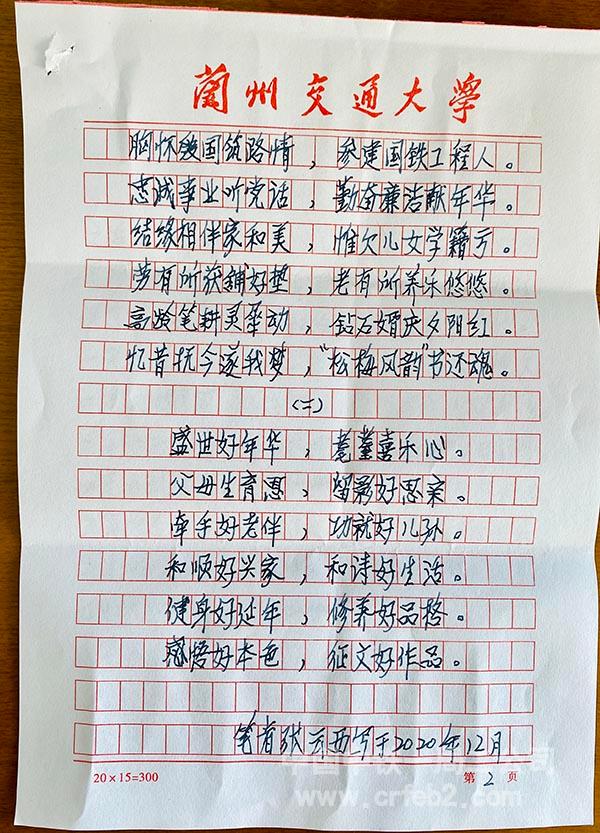 兰州交通大学
胸怀爱国筑路情，参建国铁工程人。
忠诚事业听党话，勤奋廉洁献年华。
结缘相伴家和美，惟欠儿女学籍亏。
劳有所获铺好垫，老有所养乐悠悠。
高龄笔耕灵犀动，钻石婚庆夕阳红。
忆昔抚今遂我梦，“松梅风韵”书还魂。
(二)
盛世好年华，耄耋喜乐心。
父母生育恩，留影好思亲。
牵手好老伴，功就好儿孙。
和顺好兴家，和诗好生活。
健身好延年，修养好品格。
感悟好本色，征文好作品。
笔者张云西写于2020年12月
20×15=300 第2页
www.crfeb2.com